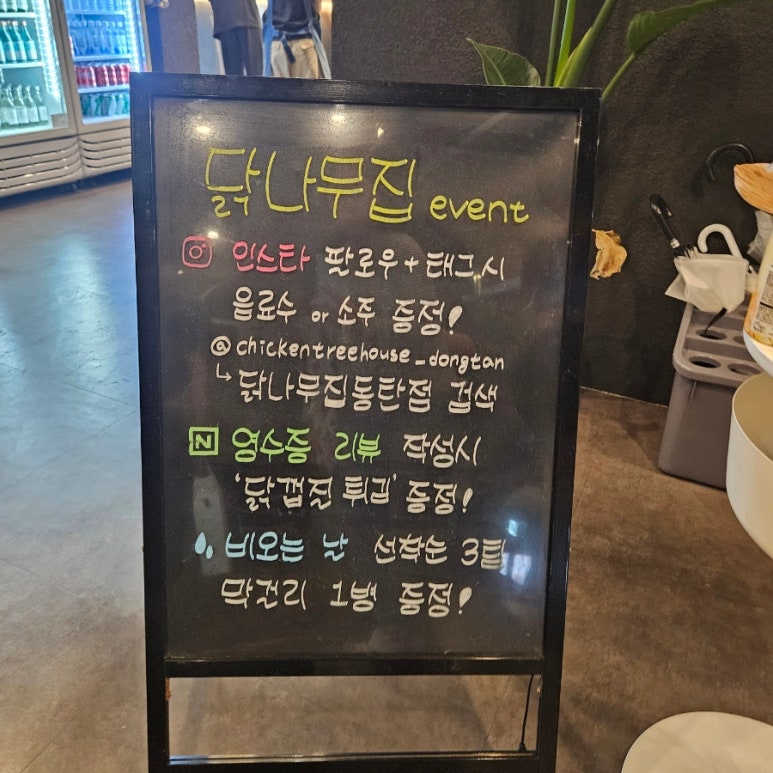 닭나무집 event
인스타 팔로우+태그시
음료수 or 소주 증정!
@chickentreehouse_dongtan
↳닭나무집동탄점 검색
N 영수증 리뷰 작성시
'닭껍질 튀김' 증정!
비오는 날 선착순 3팀
막걸리 1병 증정!